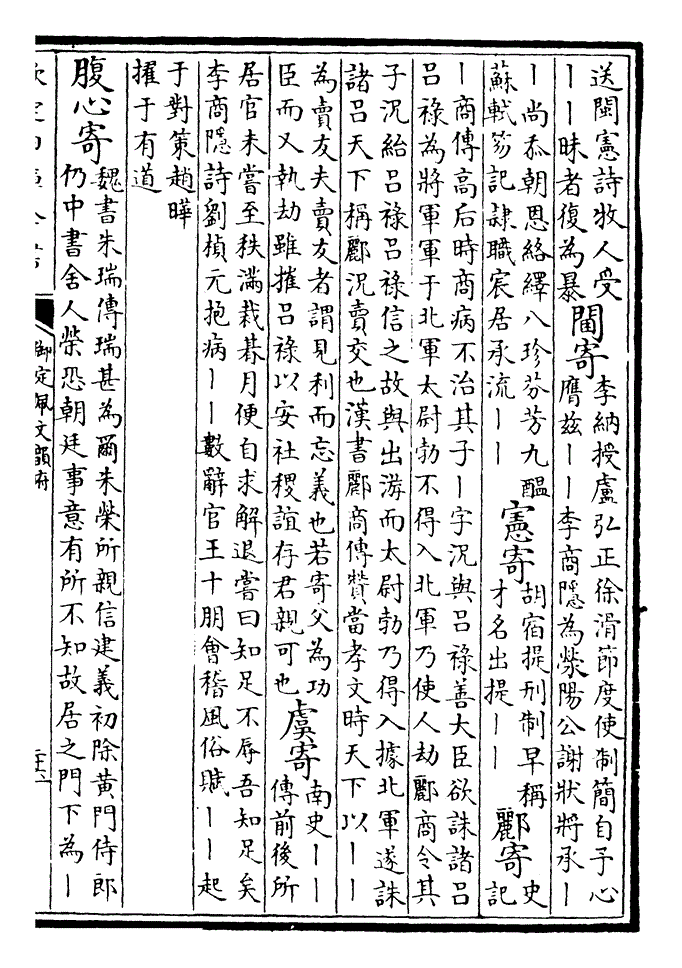 送閩憲詩牧人受
｜｜昧者復為暴
閫寄
李納授盧弘正徐滑節度使制簡自予心
膺兹｜｜李商隱為滎陽公謝狀將承｜
｜尚忝朝恩絡繹八珍芬芳九醞
蘇軾笏記隸職宸居承流｜｜
憲寄
胡宿提刑制早稱
才名出提｜｜
酈寄
史
記
｜商傳高后時商病不治其子｜字況與呂祿善大臣欲誅諸呂
呂祿為將軍軍于北軍太尉勃不得入北軍乃使人劫酈商令其
子況紿呂祿呂祿信之故與出游而太尉勃乃得入據北軍遂誅
諸呂天下稱酈況賣交也漢書酈商傳贊當孝文時天下以｜｜
為賣友夫賣友者謂見利而忘義也若寄父為功
臣而又執劫雖摧呂祿以安社稷誼存君親可也
虞寄
南史｜｜
傳前後所
居官未嘗至秩滿裁朞月便自求解退嘗曰知足不辱吾知足矣
李商隱詩劉楨元抱病｜｜數辭官王十朋會稽風俗賦｜｜起
于對策趙曄
擢于有道
腹心寄
魏書朱瑞傳瑞甚為爾朱榮所親信建義初除黃門侍郎
仍中書舍人榮恐朝廷事意有所不知故居之門下為｜
欽定四庫全書
御定佩文韻府